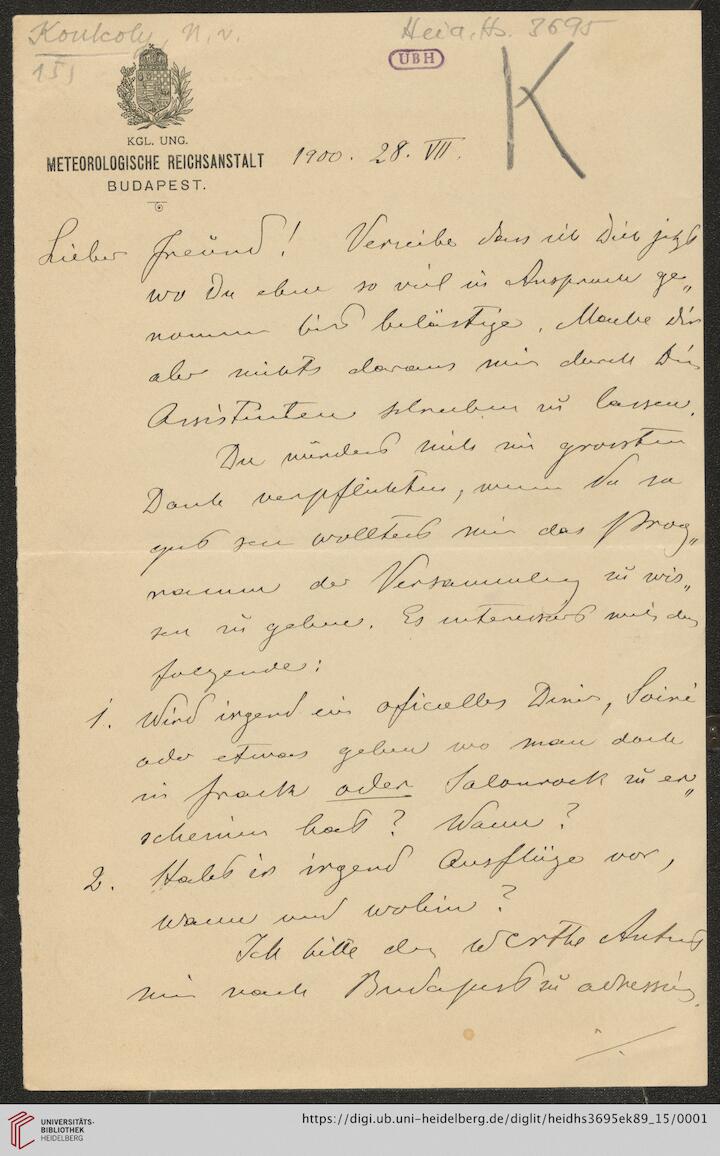 Konkoly, N. v.
Heid. Hs. 3695
15)
UBH
K
KGL. UNG.
METEOROLOGISCHE REICHSANSTALT
BUDAPEST.
1900. 28. VII.
Lieber Freund! Verzeihe dass ich Dich jetzt
wo Du eben so viel in Anspruch ge„
nommen bist belästige. Mache Dir
aber nichts daraus mir durch Din
Assistenten schreiben zu lassen.
Du würdest mich zu grossten
Dank verpflichten, wenn Du so
gut sein wolltest mir das Prog„
ramm der Versammlung zu wis„
sen zu geben. Es interessirt mich das
folgende:
1. Wird irgend ein oficielles Diner, Soiré
oder etwas geben wo man doch
in Frack oder Salonrock zu er„
scheinen hat? Wann?
2. Habt ihr irgend Ausflüge vor,
wann und wohin?
Ich bitte die werthe Antwort
mir nach Budapest zu adressiren.
./.
UNIVERSITÄTS-
BIBLIOTHEK
HEIDELBERG
https://digi.ub.uni-heidelberg.de/diglit/heidhs3695ek89_15/0001